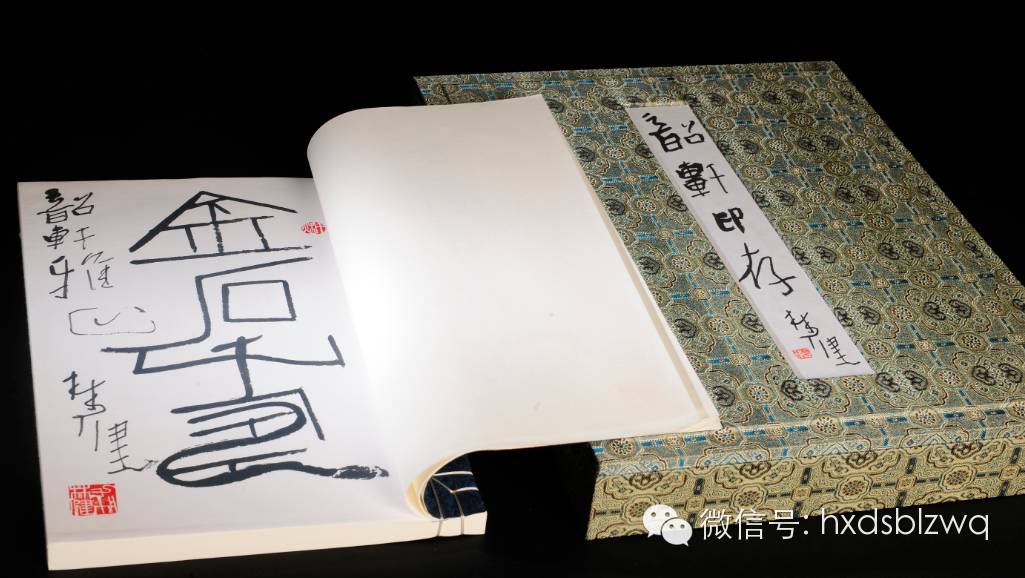 金石
韶軒雅
林健
韶軒印存
林健
微信号: hxdsblzwq